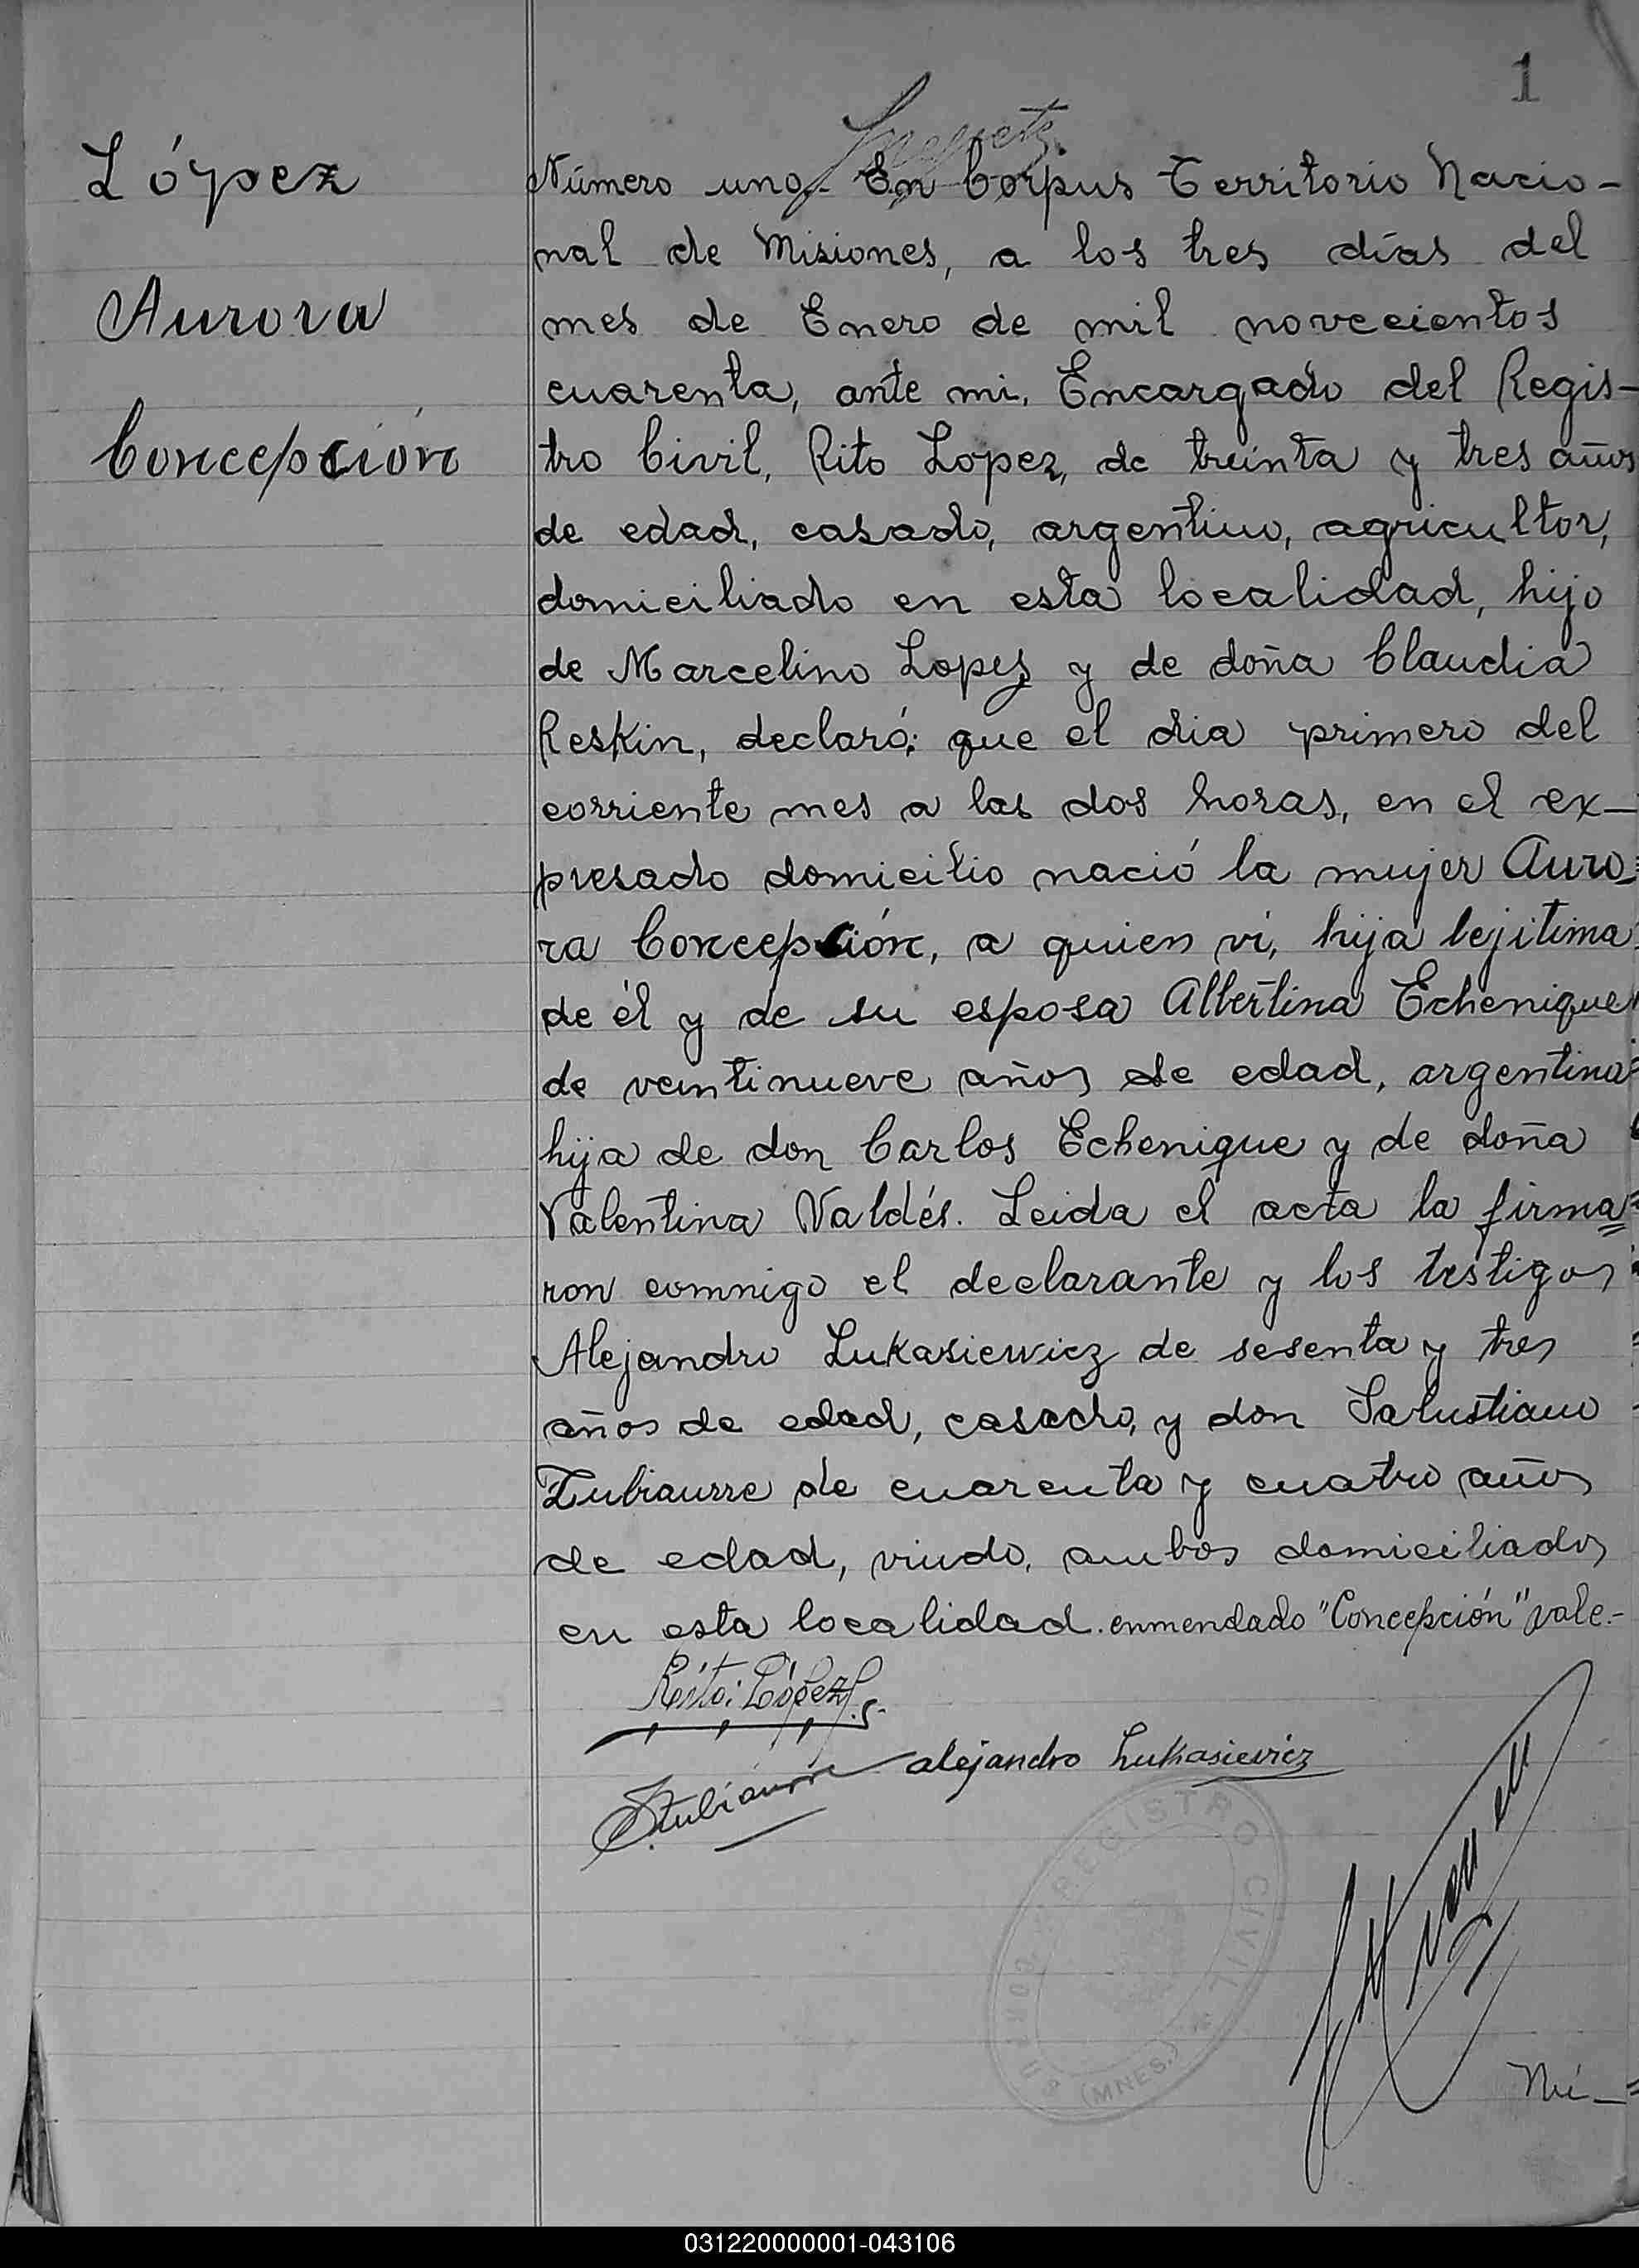 1
López
Aurora
Concepción
Número uno. En Corpus Territorio Nacio-
nal de Misiones, a los tres días del
mes de Enero de mil novecientos
cuarenta, ante mi, Encargado del Regis-
tro Civil, Rito Lopez, de treinta y tres años
de edad, casado, argentino, agricultor,
domiciliado en esta localidad, hijo
de Marcelino Lopez y de doña Claudia
Reskin, declaró: que el dia primero del
corriente mes a las dos horas, en el ex-
presado domicilio nació la mujer Auro-
ra Concepción, a quien ví, hija lejitima
de él y de su esposa Albertina Echenique
de veintinueve años de edad, argentina
hija de don Carlos Echenique y de doña
Valentina Valdés. Leida el acta la firma=
ron comnigo el declarante y los testigos
Alejandro Lukasiewicz de sesenta y tres
años de edad, casado, y don Salustiano
Zubiaurre de cuarenta y cuatro años
de edad, viudo, ambos domiciliados
en esta localidad. enmendado "Concepción" vale.-
Rito López
alejandro Lukasievicz
SZubiaurre
REGISTRO CIVIL
CORPUS
(MNES.)
Nú-
031220000001-043106